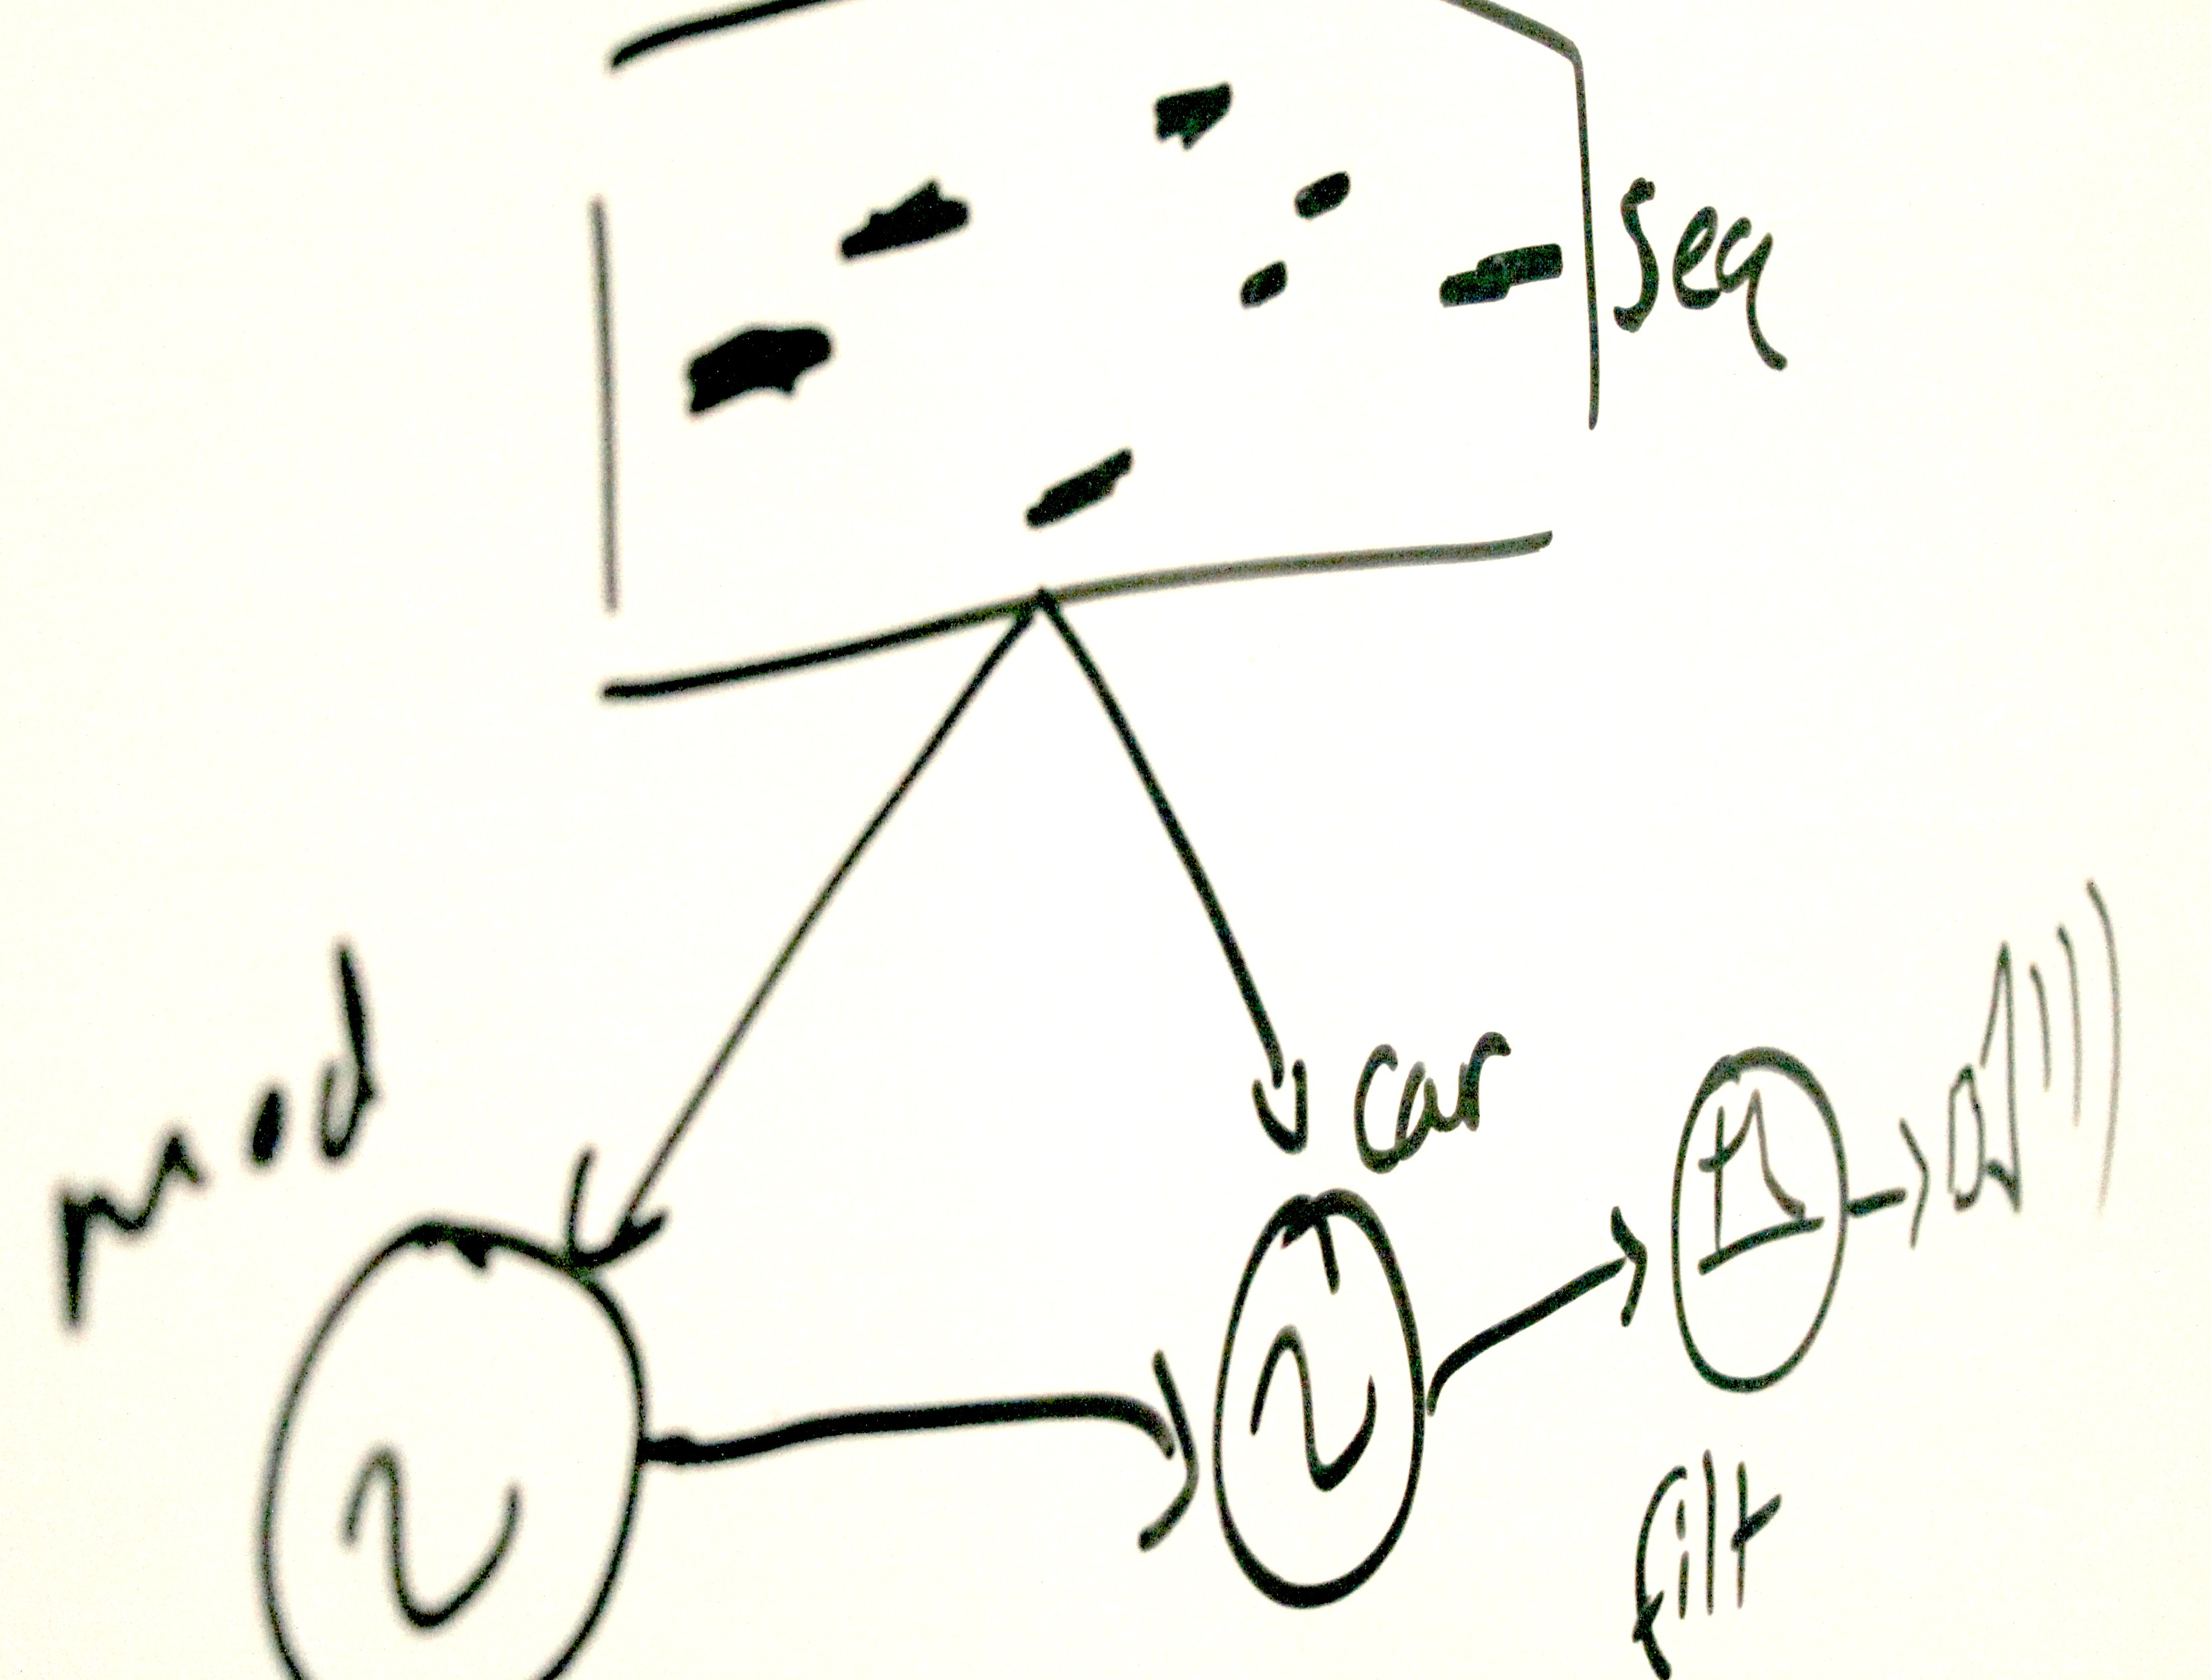 seq
mod
car
filt